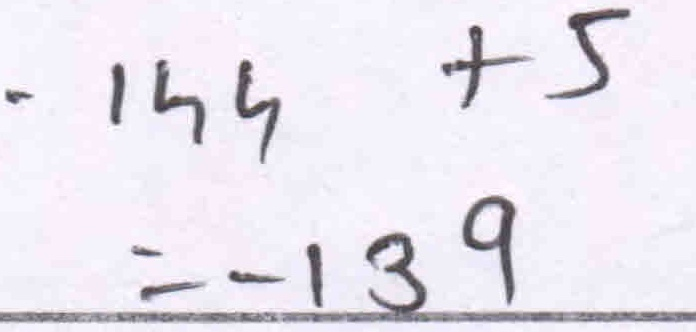 - 144 +5
= -139